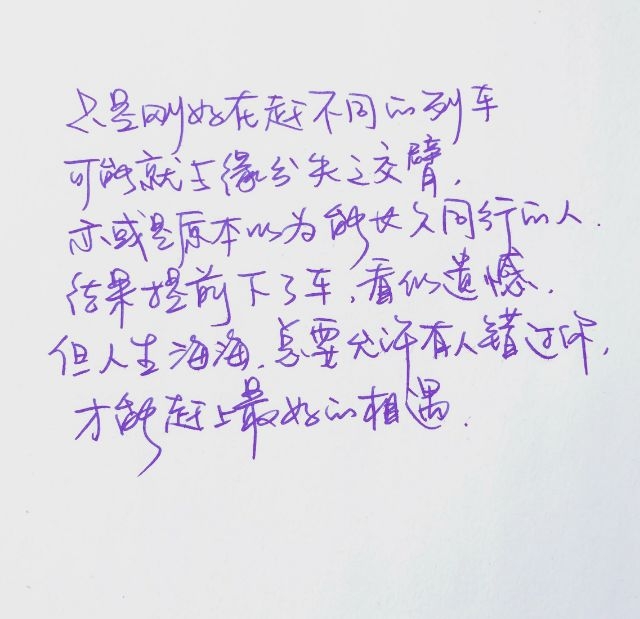 只是刚好在赶不同的列车
可能就与缘分失之交臂,
亦或是原本以为能长久同行的人.
结果提前下了车,看似遗憾.
但人生海海,总要允许有人错过你,
才能赶上最好的相遇.